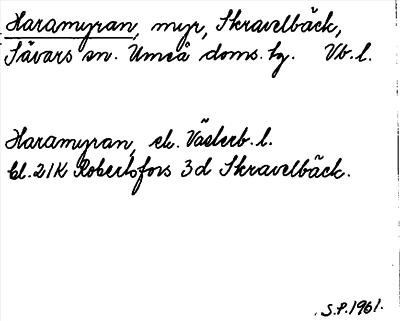 Haramyran, myr, Skravelbäck,
Sävars sn. Umeå doms. tg. Vb. l.
Haramyran, ek. Västerb. l.
bl. 21K Robertsfors 3d Skravelbäck.
S.P. 1961.